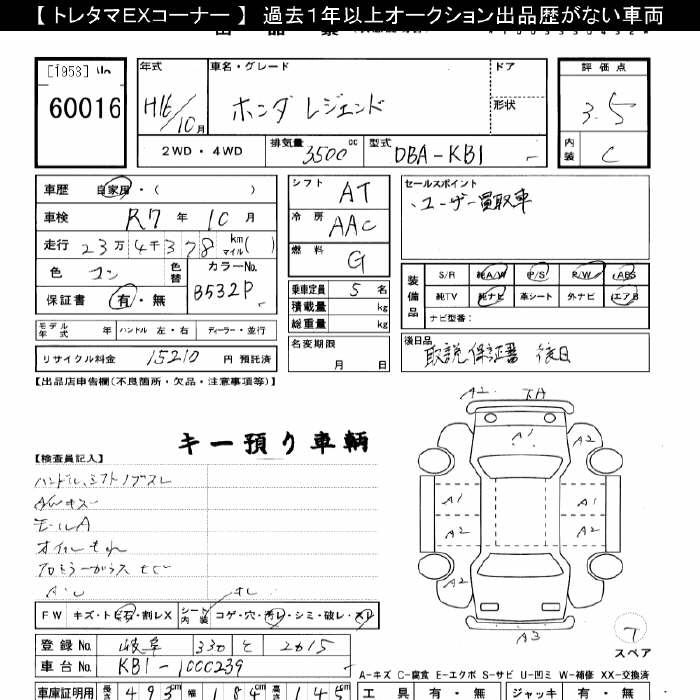 【 トレタマEXコーナー 】 過去1年以上オークション出品歴がない車両
[1953]
60016
年式
H16/10月
車名・グレード
ホンダ レジェンド
ドア
形状
評価点
3.5
内装
C
2WD・4WD
排気量
3500cc
型式
DBA-KB1
車歴 自家用・( )
車検 R7年 10月
走行 23万4千378 km マイル( )
色 コン
色替
カラーNo.
B532P
保証書 有・無
モデル年式 年 ハンドル 左・右 ディーラー・並行
リサイクル料金 15210 円 預託済
シフト AT
冷房 AAC
燃料 G
乗車定員 5名
積載量 kg
総重量 kg
名変期限
月 日
セールスポイント
ユーザー買取車
装備品
S/R 純A/W P/S R/W ABS
純TV 純ナビ 革シート 外ナビ エアB
ナビ型番:
後日品
取説 保証書 後日
【出品店申告欄(不良箇所・欠品・注意事項等)】
キー預り車輌
【検査員記入】
ハンドル、シフトノブスレ
AWキズ
モールA
オイルもれ
FW キズ・トビ石・割レX
シート内装 コゲ・穴・汚レ・シミ・破レ・スレ
登録No. 岐阜 330 と 2615
車台No. KB1-1000239
車庫証明用 長さ 493cm 幅 184cm 高さ 145
A2
A1
A2
A1
A1
A2
A2
A2
A3
スペア
A-キズ C-腐食 E-エクボ S-サビ U-凹ミ W-補修 XX-交換済
工具 有・無 ジャッキ 有・無